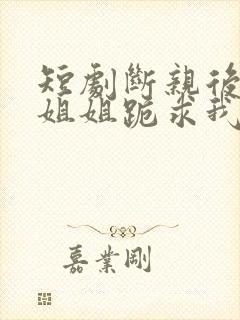 短劇斷親後
姐姐跪求我
嘉業剛